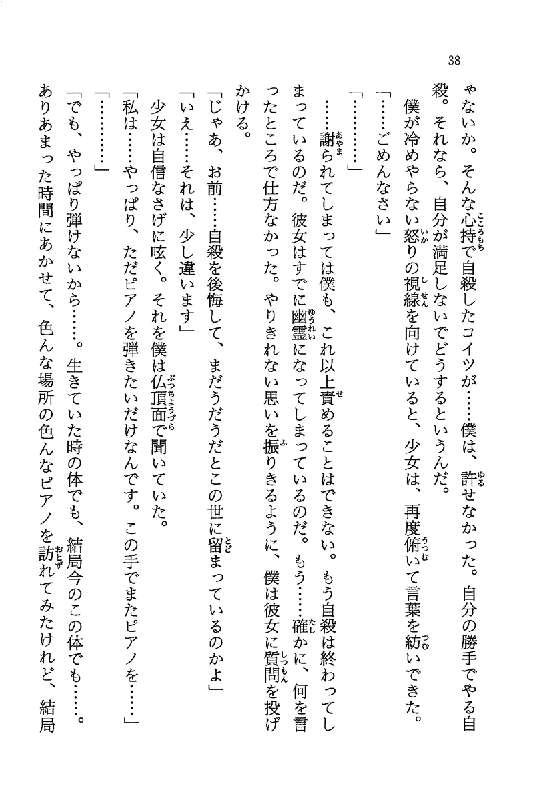 38
ゃないか。そんな心持で自殺したコイツが……僕は、許せなかった。自分の勝手でやる自
殺。それなら、自分が満足しないでどうするというんだ。
僕が冷めやらない怒りの視線を向けていると、少女は、再度俯いて言葉を紡いできた。
「……ごめんなさい」
「…………」
……謝られてしまっては僕も、これ以上責めることはできない。もう自殺は終わってし
まっているのだ。彼女はすでに幽霊になってしまっているのだ。もう……確かに、何を言
ったところで仕方なかった。やりきれない思いを振りきるように、僕は彼女に質問を投げ
かける。
「じゃあ、お前……自殺を後悔して、まだうだうだとこの世に留まっているのかよ」
「いえ……それは、少し違います」
少女は自信なさげに呟く。それを僕は仏頂面で聞いていた。
「私は……やっぱり、ただピアノを弾きたいだけなんです。この手でまたピアノを……」
「…………」
「でも、やっぱり弾けないから……。生きていた時の体でも、結局今のこの体でも……。
ありあまった時間にあかせて、色んな場所の色んなピアノを訪れてみたけれど、結局